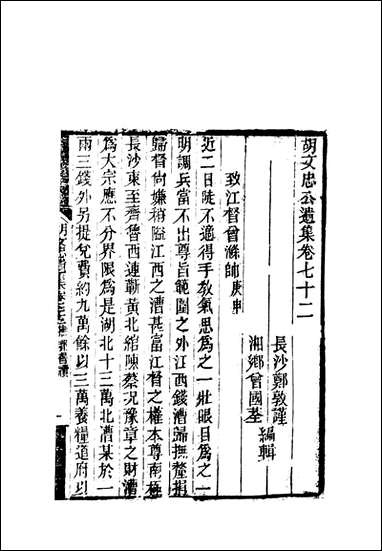 胡文忠公遺集卷七十二
長沙鄭敦謹
湘鄉曾國荃
編輯
致江督曾滌帥庚申
近二日陡不適得手教氣思為之一壯眼目為之一
明調兵當不出尊旨範圍之外江西錢漕歸撫釐捐
歸督尚嫌稍隘江西之漕甚富江督之權本尊南極
長沙東至齊魯西連蘄黃北綰陳蔡況豫章之財漕
為大宗應不分界限為是湖北十三萬北漕某於一
兩三錢外另提兌費約九萬餘以三萬養糧道府以